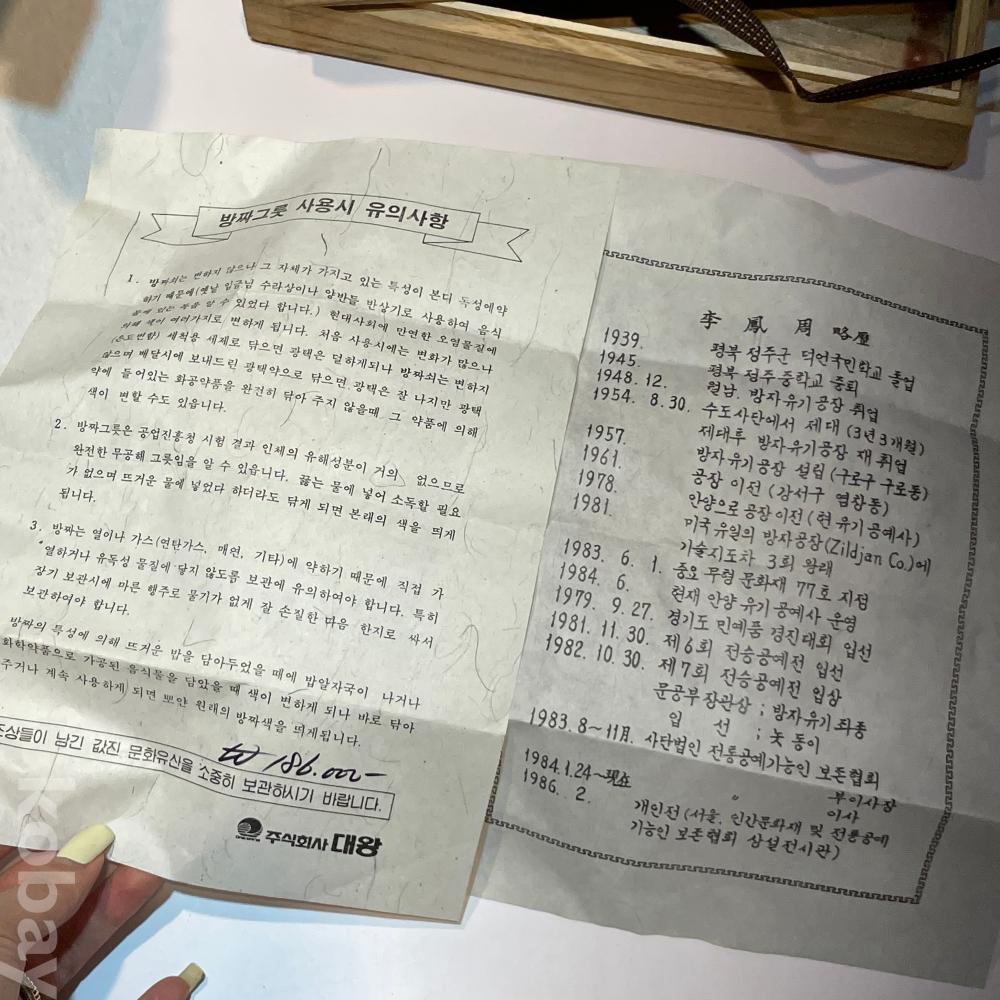 방짜그릇 사용시 유의사항
1. 방짜쇠는 변하지 않으나 그 자체가 가지고 있는 특성이 본디 독성에 약
하기 때문에(옛날 임금님 수라상이나 양반들 반상기로 사용하여 음식
물에 있는 독을 알 수 있었다 합니다.) 현대사회에 만연한 오염물질에
의해 색이 여러가지로 변하게 됩니다. 처음 사용시에는 변화가 많으나
(온도변함) 세척용 세제로 닦으면 광택은 덜하게되나 방짜쇠는 변하지
않으며 배달시에 보내드린 광택약으로 닦으면 광택은 잘 나지만 광택
약에 들어있는 화공약품을 완전히 닦아 주지 않을때 그 약품에 의해
색이 변할 수도 있읍니다.
2. 방짜그릇은 공업진흥청 시험 결과 인체의 유해성분이 거의 없으므로
완전한 무공해 그릇임을 알 수 있읍니다. 끓는 물에 넣어 소독할 필요
가 없으며 뜨거운 물에 넣었다 하더라도 닦게 되면 본래의 색을 띄게
됩니다.
3. 방짜는 열이나 가스(연탄가스, 매연, 기타)에 약하기 때문에 직접 가
열하거나 유독성 물질에 닿지 않도록 보관에 유의하여야 합니다. 특히
장기 보관시에 마른 행주로 물기가 없게 잘 손질한 다음 한지로 싸서
보관하여야 합니다.
방짜의 특성에 의해 뜨거운 밥을 담아두었을 때에 밥알자국이 나거나
화학약품으로 가공된 음식물을 담았을 때 색이 변하게 되나 바로 닦아
주거나 계속 사용하게 되면 뽀얀 원래의 방짜색을 띄게됩니다.
₩ 186.000-
조상들이 남긴 값진 문화유산을 소중히 보관하시기 바랍니다.
주식회사 대왕
李 鳳 周 略歷
1939. 평북 정주군 덕언국민학교 졸업
1945. 평북 정주 중학교 중퇴
1948. 12. 월남. 방자유기공장 취업
1954. 8. 30. 수도사단에서 제대 (3년 3개월)
1957. 제대후 방자유기공장 재 취업
1961. 방자유기공장 설립 (구로구 구로동)
1978. 공장 이전 (강서구 염창동)
1981. 안양으로 공장 이전 (현 유기공예사)
미국 유일의 방자공장(Zildjan Co.)에
기술지도차 3회 왕래
1983. 6. 1. 중요 무형 문화재 77호 지정
1984. 6. 현재 안양 유기 공예사 운영
1979. 9. 27. 경기도 민예품 경진대회 입선
1981. 11. 30. 제6회 전승공예전 입선
1982. 10. 30. 제7회 전승공예전 입상
문공부장관상 ; 방자유기 좌종
입 선 ; 놋 동이
1983. 8~11月. 사단법인 전통공예기능인 보존협회
부이사장
1984. 1. 24~現在 〃 이사
1986. 2. 개인전 (서울. 인간문화재 및 전통공예
기능인 보존협회 상설전시관)
kobay